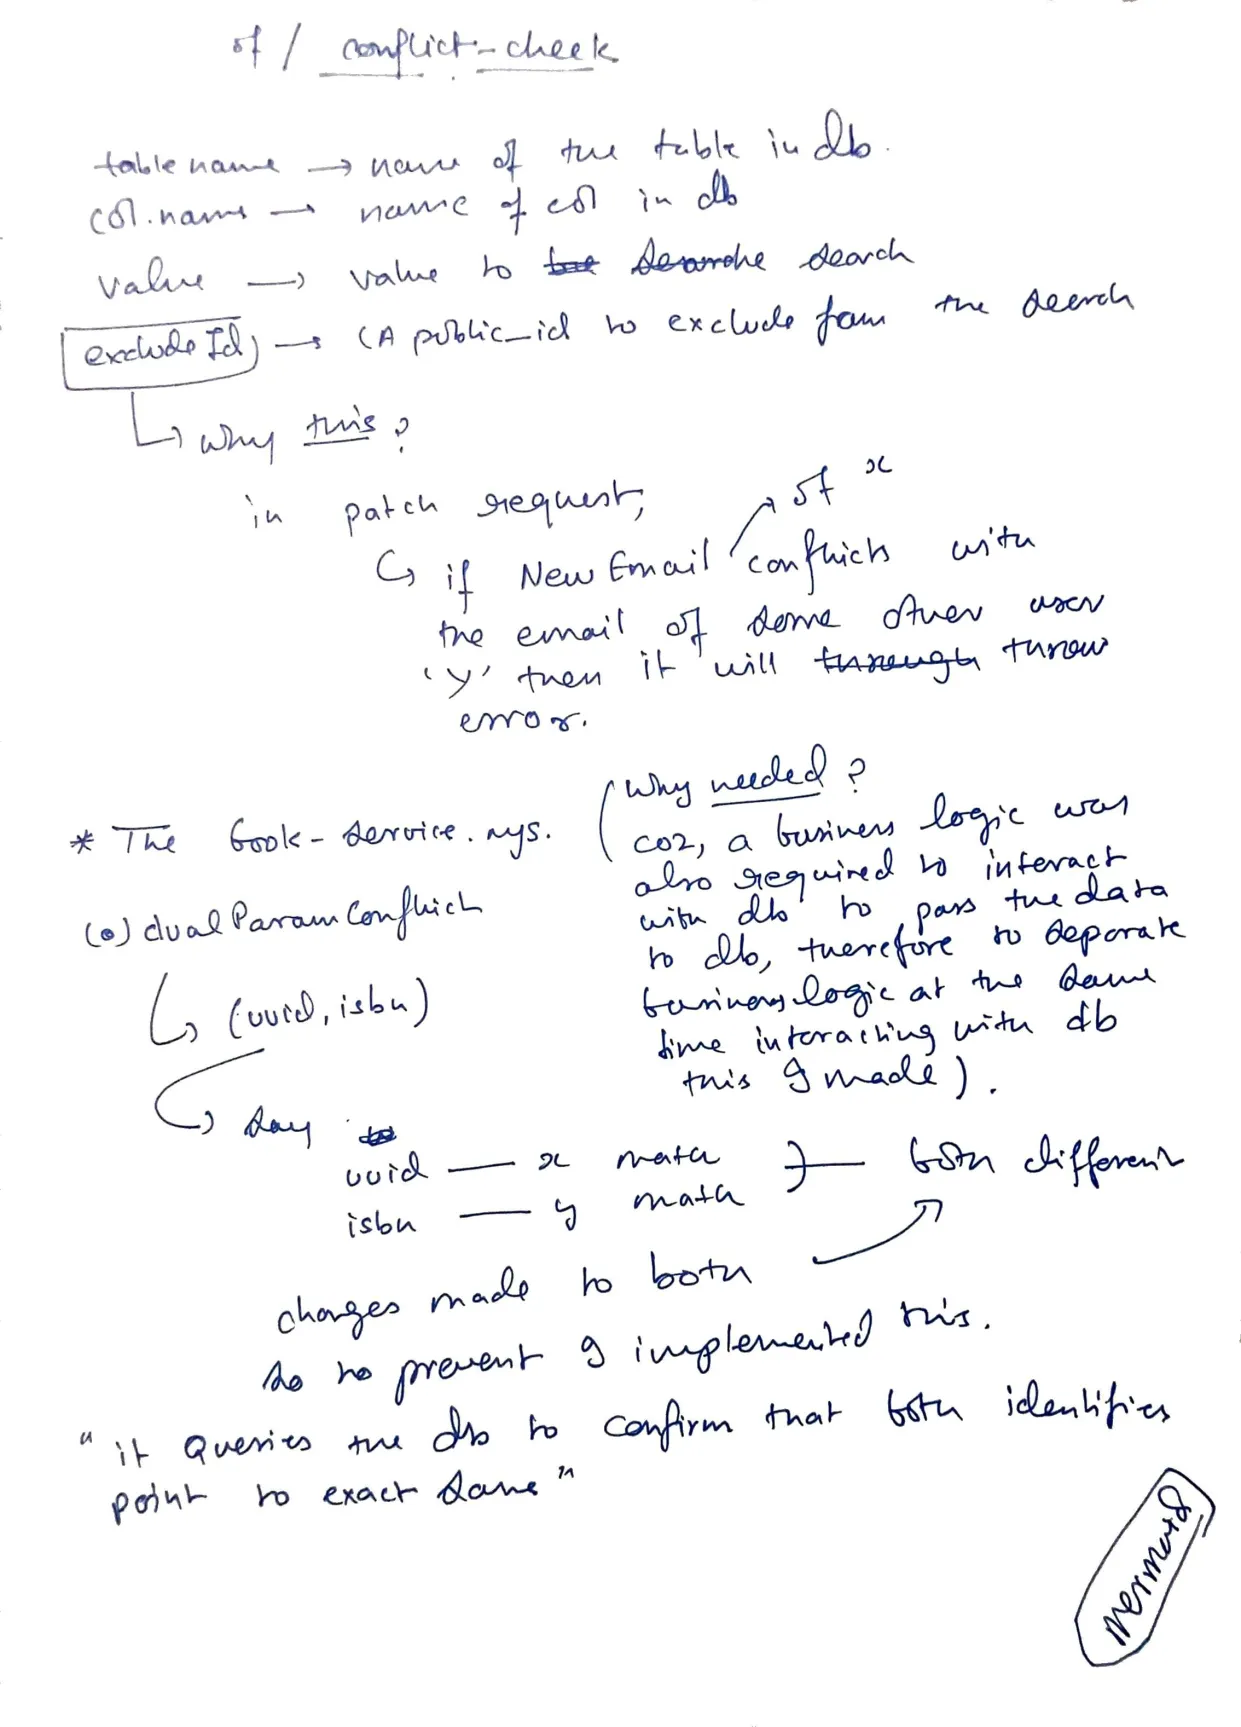 of / conflict-check
table name → name of the table in db.
col.name → name of col in db
value → value to search
excludeId) → (A public_id to exclude from the search
↳ why this?
in patch request,
↳ if New Email ↗ of x conflicts with
the email of some other user
'y' then it will through throw
error.
* The book-service.
(why needed?
coz, a business logic was
also required to interact
with db to pass the data
to db, therefore to seperate
business logic at the same
time interacting with db
this I made).
(o) dualParamConflict
↳ (uuid, isbn)
↳ say
uuid — x math } — both different
isbn — y math
changes made to both ↗
so to prevent I implemented this.
" it Queries the db to confirm that both identifies
point to exact same "
mermaid